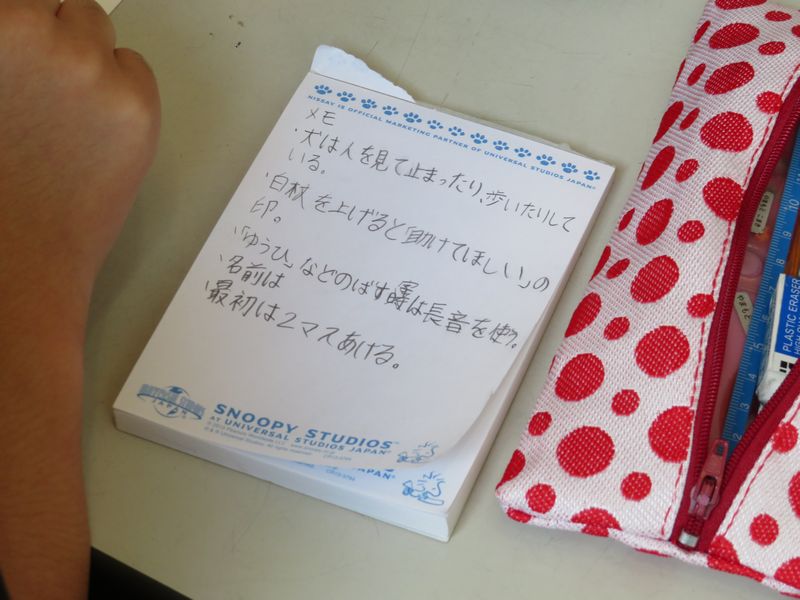 NISSAY IS OFFICIAL MARKETING PARTNER OF UNIVERSAL STUDIOS JAPAN.®
メモ
・犬は人を見て止まったり、歩いたりして
いる。
・白杖を上げると「助けてほしい」の
印。
・「ゆうひ」などのばす時は長音を使う。
・名前は
・最初は2マスあける。
SNOOPY STUDIOS™
AT UNIVERSAL STUDIOS JAPAN™
PLASTIC ERASER